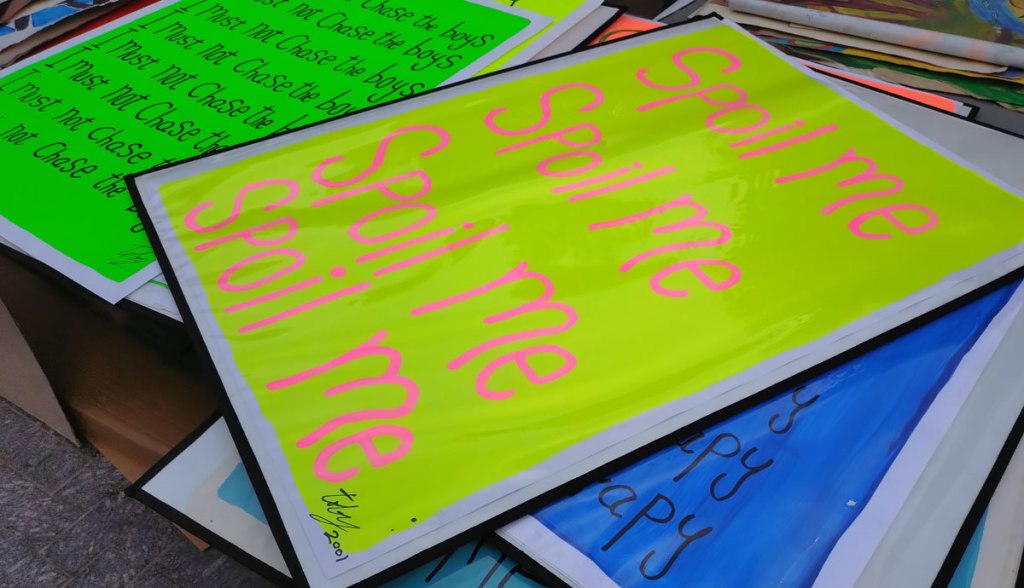 I must not Chase the boys
I must not Chase the boys
I must not Chase the boys
I must not Chase the
I must not Chase the
not Chase the
Spoil me
Spoil me
Spoil me
Spoil me
toby
2001
apy
apy